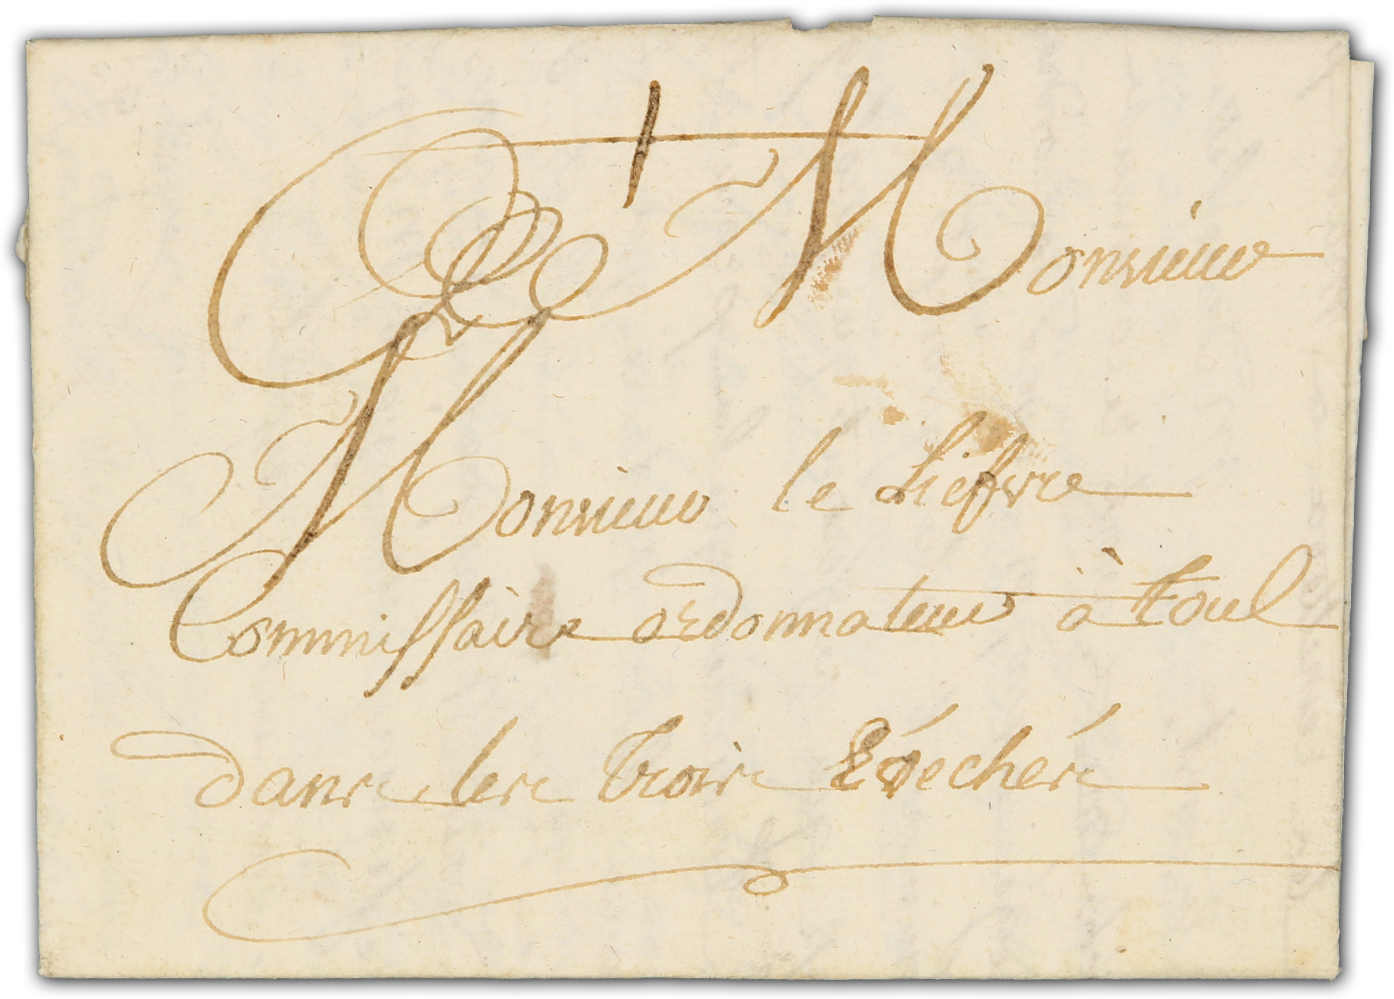 Monsieur
Monsieur le Liefvre
Commissaire ordonnateur à Toul
dans les Trois Evechés